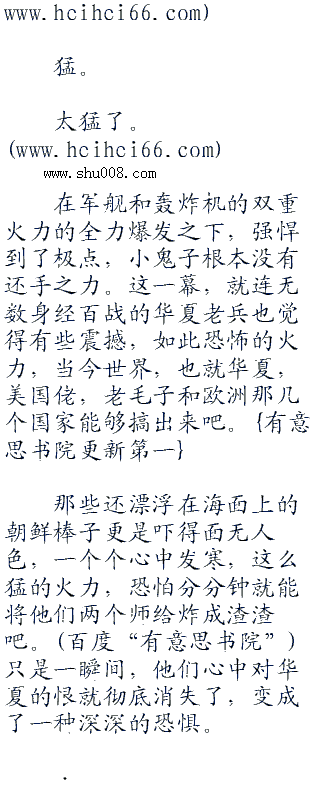 www.hcihci66.com)
猛。
太猛了。
(www.hcihci66.com)
www.shu008.com
在军舰和轰炸机的双重
火力的全力爆发之下，强悍
到了极点，小鬼子根本没有
还手之力。这一幕，就连无
数身经百战的华夏老兵也觉
得有些震撼，如此恐怖的火
力，当今世界，也就华夏，
美国佬，老毛子和欧洲那几
个国家能够搞出来吧。{有意
思书院更新第一}
那些还漂浮在海面上的
朝鲜棒子更是吓得面无人
色，一个个心中发寒，这么
猛的火力，恐怕分分钟就能
将他们两个师给炸成渣渣
吧。(百度“有意思书院”)
只是一瞬间，他们心中对华
夏的恨就彻底消失了，变成
了一种深深的恐惧。
.